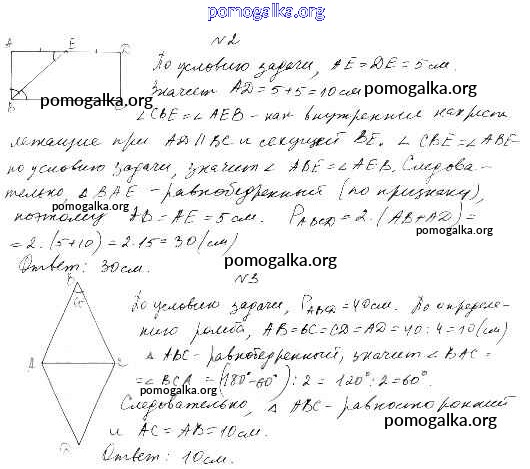 pomogalka.org
№2
A E D
По условию задачи, AE = DE = 5 см.
Значит AD = 5+5 = 10 см
B pomogalka.org pomogalka.org
∠CBE = ∠AEB - как внутренние накрест
pomogalka.org
лежащие при AD ∥ BC и секущей BE. ∠CBE = ∠ABE
по условию задачи, значит ∠ABE = ∠AEB. Следова-
тельно, △BAE - равнобедренный (по признаку),
pomogalka.org
поэтому AB = AE = 5 см. P_ABCD = 2·(AB+AD) =
pomogalka.org
= 2·(5+10) = 2·15 = 30 (см)
pomogalka.org
Ответ: 30 см.
№3
B
По условию задачи, P_ABCD = 40 см. По определе-
нию ромба, AB = BC = CD = AD = 40 : 4 = 10 (см)
A C
△ABC - равнобедренный, значит ∠BAC =
= ∠BCA = (180°-60°) : 2 = 120° : 2 = 60°.
pomogalka.org
Следовательно, △ABC - равносторонний
и AC = AB = 10 см.
pomogalka.org
D
Ответ: 10 см.